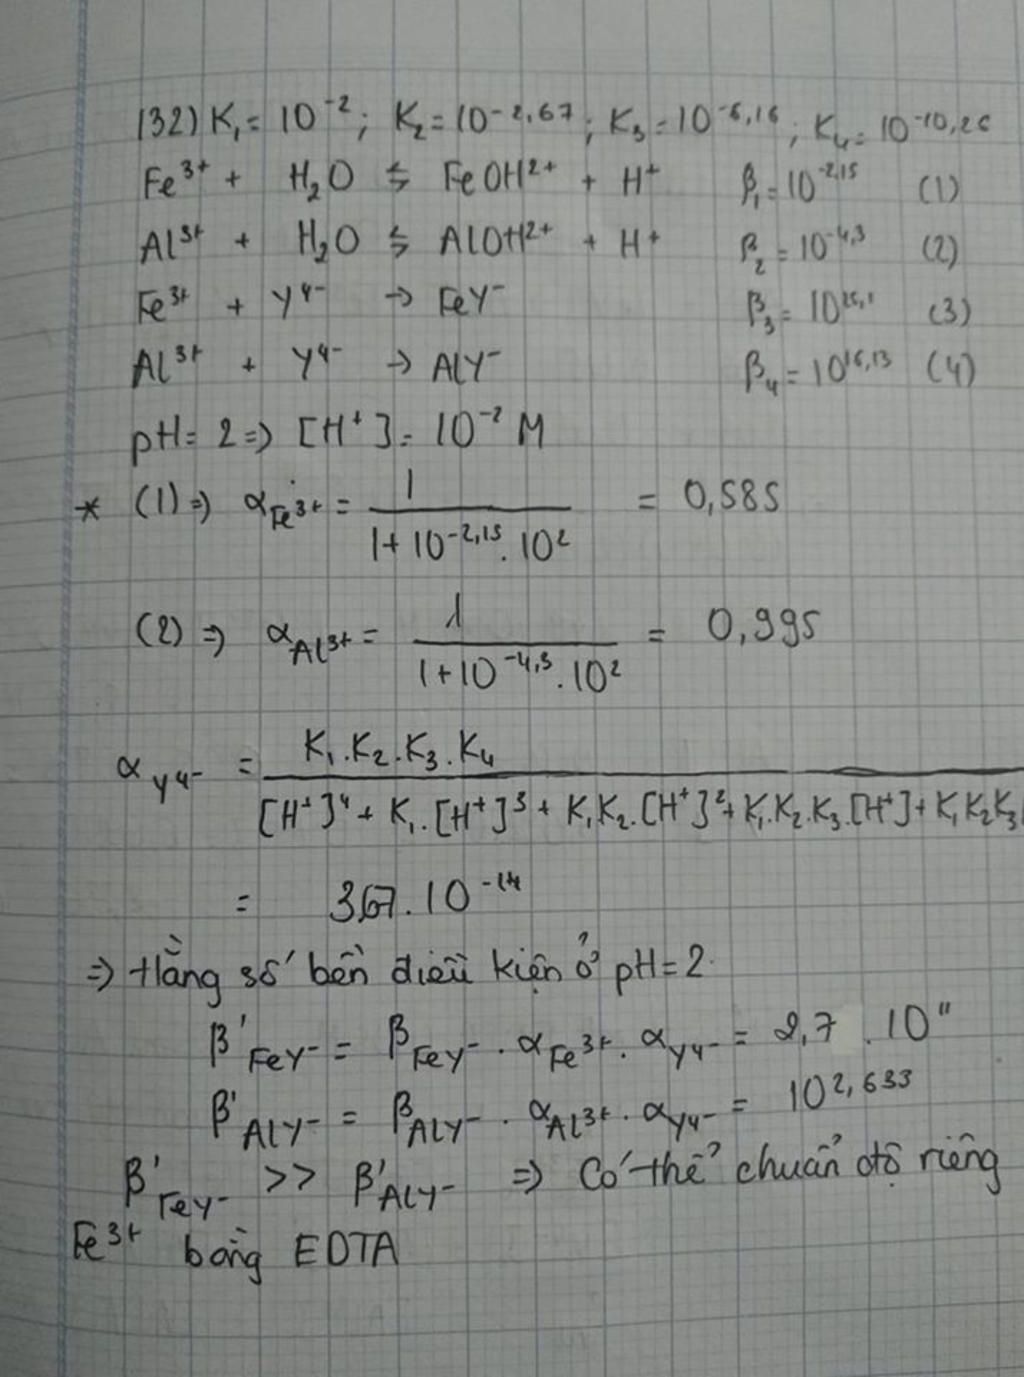 132) K₁ = 10⁻²; K₂ = 10⁻²,⁶⁷; K₃ = 10⁻⁶,¹⁶; K₄ = 10⁻¹⁰,²⁶
Fe³⁺ + H₂O ⇆ FeOH²⁺ + H⁺ β₁ = 10⁻²,¹⁵ (1)
Al³⁺ + H₂O ⇆ AlOH²⁺ + H⁺ β₂ = 10⁻⁴,³ (2)
Fe³⁺ + Y⁴⁻ → FeY⁻ β₃ = 10²⁵,¹ (3)
Al³⁺ + Y⁴⁻ → AlY⁻ β₄ = 10¹⁶,¹³ (4)
pH = 2 => [H⁺] = 10⁻² M
* (1) => α Fe³⁺ = 1 / (1 + 10⁻²,¹⁵ . 10²) = 0,585
(2) => α Al³⁺ = 1 / (1 + 10⁻⁴,³ . 10²) = 0,995
α Y⁴⁻ = K₁.K₂.K₃.K₄ / [H⁺]⁴ + K₁.[H⁺]³ + K₁K₂.[H⁺]² + K₁.K₂.K₃.[H⁺] + K₁K₂K₃
= 3,67.10⁻¹⁴
=> Hằng số bền điều kiện ở pH = 2
β' FeY⁻ = β FeY⁻ . α Fe³⁺ . α Y⁴⁻ = 2,7 . 10¹¹
β' AlY⁻ = β AlY⁻ . α Al³⁺ . α Y⁴⁻ = 10²,⁶³³
β' FeY⁻ >> β' AlY⁻ => Có thể chuẩn độ riêng
Fe³⁺ bằng EDTA